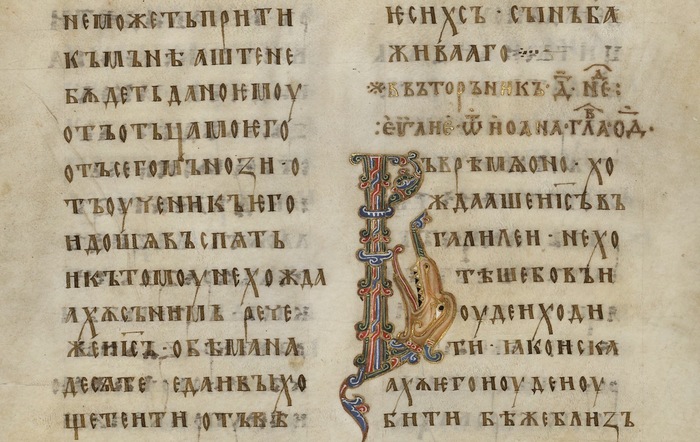 не можетъ прити
къ мънѣ аште не
бѫдетъ дано емоу
отъ отьца моего
отъ сего мънози · о
тъ оученикъ его
идошѧ въспѧть
и къ томоу не хожда
ахѫ съ нимь · рече
же ис҃ъ · обѣма на
десѧте · еда и вы хо
щете ити отъ ме
не
ѥси х҃съ · сынъ б҃а
живааго
въ вторьникъ · д҃ · не҃д :
: еу҃гл не · ѿ иоана · гла · о҃д ·
Въ врѣмѧ оно · хо
ждааше ис҃ъ въ
галилеи · не хо
тѣше бо въ и
оудеи ходи
ти · ꙗко иска
ахѫ и его иоудеи оу
бити · бѣ же близъ